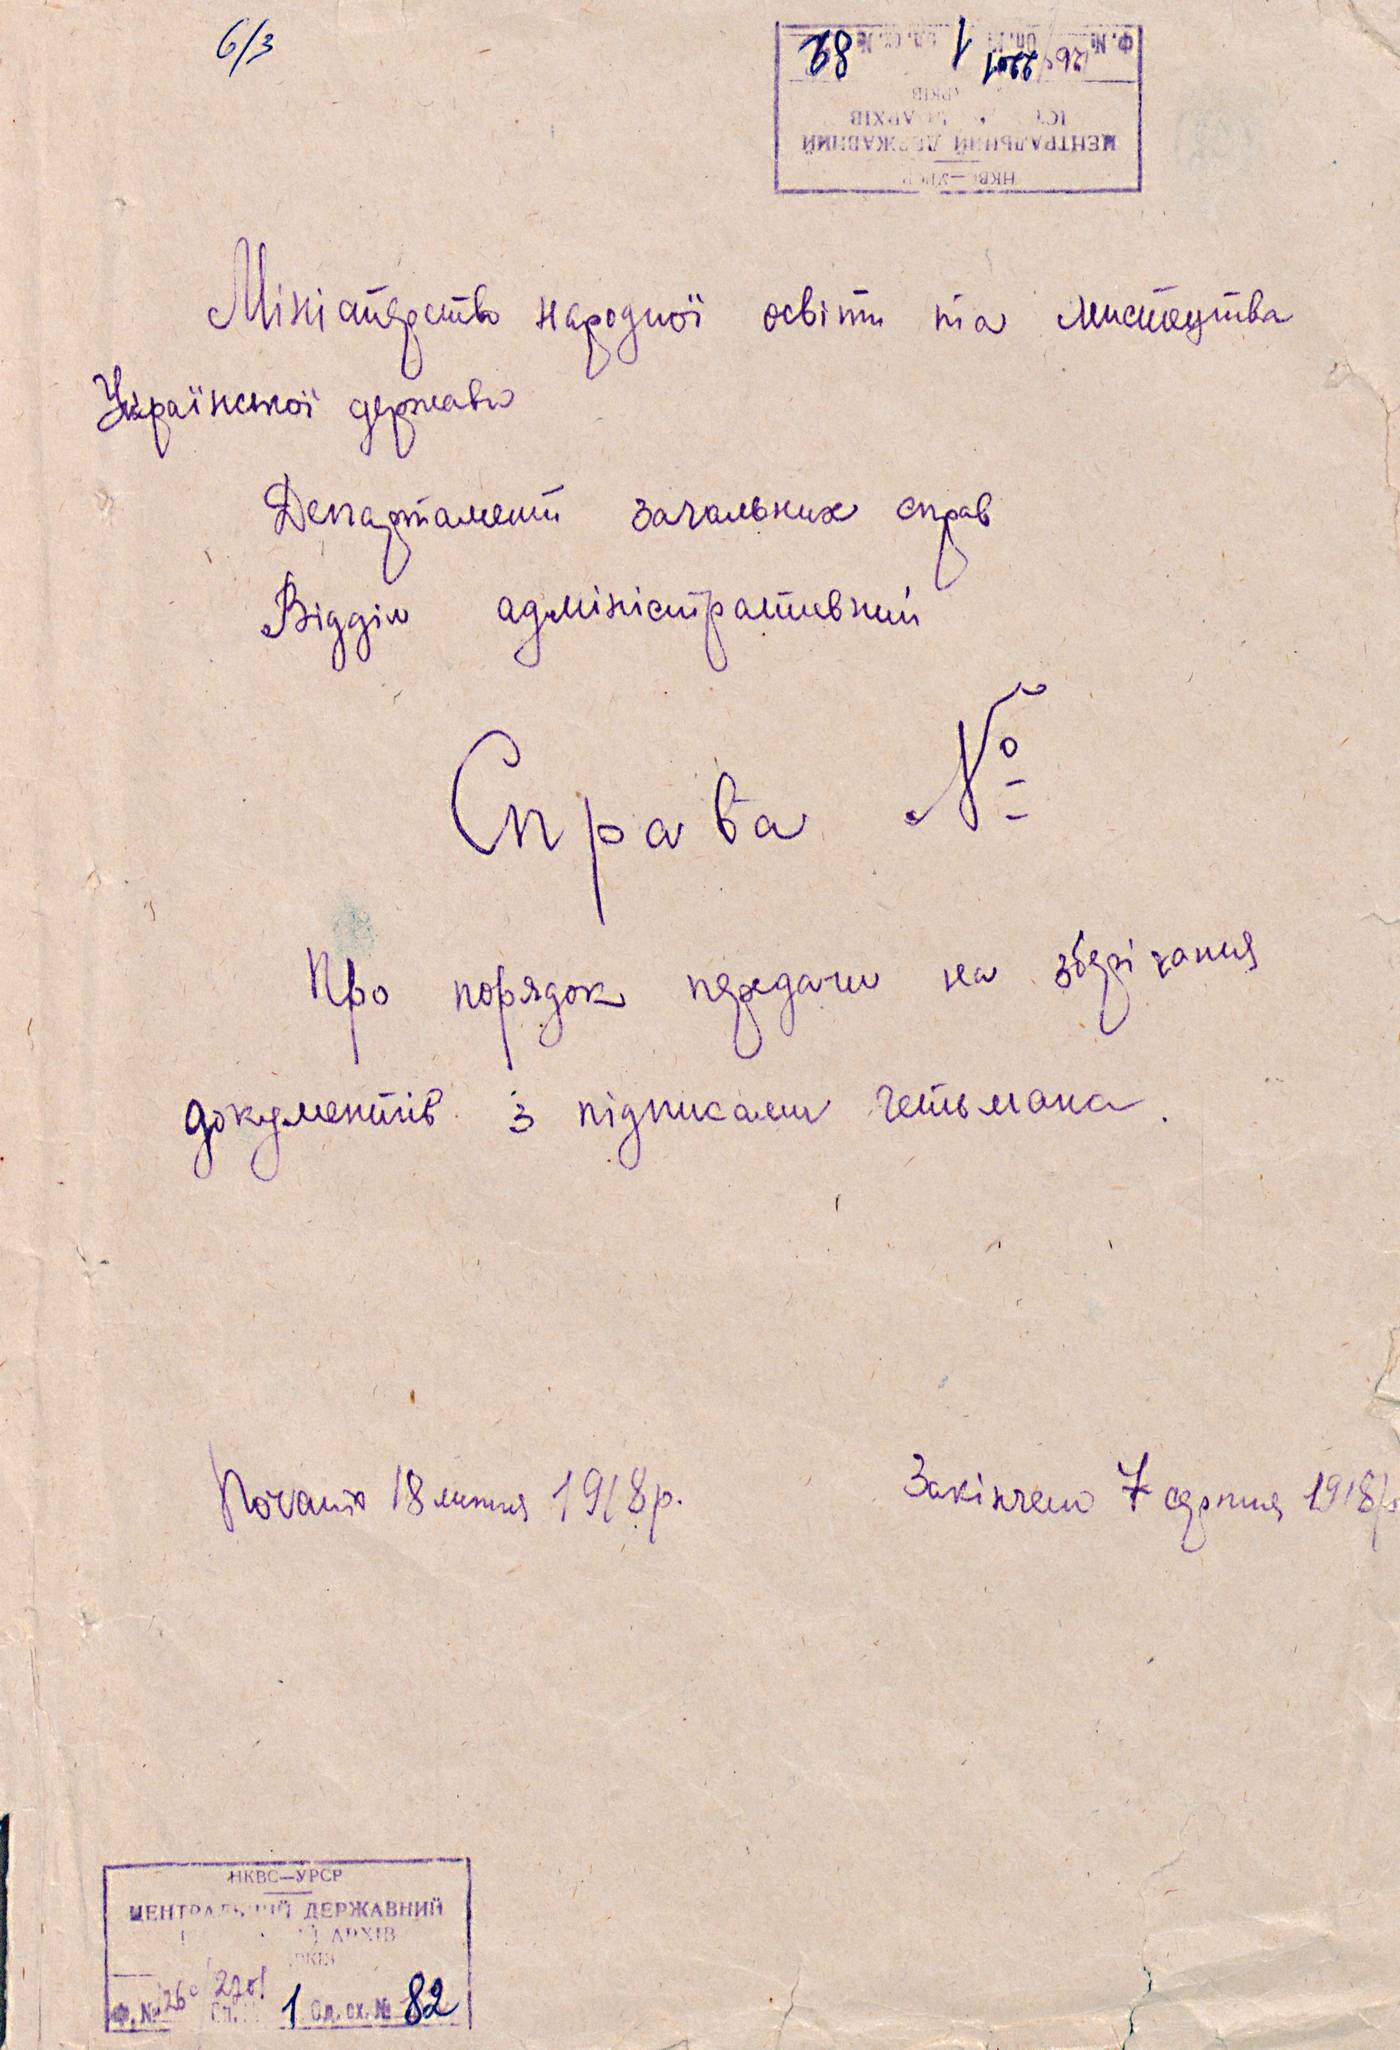 6/3
Ф. № 2201 Оп. № 1 Од. сх. № 82
АРХІВ
ЦЕНТРАЛЬНИЙ ДЕРЖАВНИЙ
НКВС—УРСР
Міністерство народної освіти та мистецтва
Української держави
Департамент загальних справ
Відділ адміністративний
Справа №
Про порядок передачи на зберігання
документів з підписами гетьмана.
Почато 18 липня 1918 р.
Закінчено 7 серпня 1918 р.
НКВС—УРСР
ЦЕНТРАЛЬНИЙ ДЕРЖАВНИЙ
АРХІВ
Ф. № 2201 Оп. № 1 Од. сх. № 82